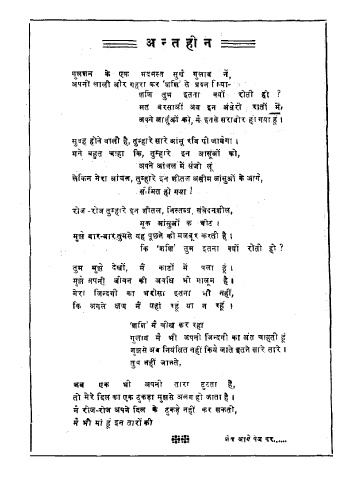 अन्तहीन
गुलशन के एक मदमस्त सुर्ख गुलाब ने,
अपनी लाली और गहरा कर 'शशि' से प्रश्न किया-
शशि तुम इतना क्यों रोती हो ?
मत बरसाओ अब इन अंधेरी रातों में,
अपने आंसुओं को, मैं इनसे सराबोर हो गया हूं ।
सुबह होने वाली है, तुम्हारे सारे आंसू रवि पी जायेगा ।
मैंने बहुत चाहा कि, तुम्हारे इन आंसुओं को,
अपने आंचल में संजो लूं
लेकिन मेरा आंचल, तुम्हारे इन शीतल असीम आंसुओं के आगे,
सीमित हो गया !
रोज-रोज तुम्हारे इन शीतल, निस्तब्ध, संवेदनशील,
मूक आंसुओं की चोट ।
मुझे बार-बार तुमसे यह पूछने को मजबूर करती है ।
कि 'शशि' तुम इतना क्यों रोती हो ?
तुम मुझे देखो, मैं कांटों में पला हूं ।
मुझे अपनी जीवन की अवधि भी मालूम है ।
मेरी जिन्दगी का भरोसा इतना भी नहीं,
कि अगले क्षण मैं यहां रहूं या न रहूं ।
'शशि' मैं चीख कर रहा
गुलाब मैं भी अपनी जिन्दगी का अंत चाहती हूं
मुझसे अब नियंत्रित नहीं किये जाते इतने सारे तारे ।
तुम नहीं जानते,
जब एक भी अपनी तारा टूटता है,
तो मेरे दिल का एक टुकड़ा मुझसे अलग हो जाता है ।
मैं रोज-रोज अपने दिल के टुकड़े नहीं कर सकती,
मैं भी मां हूं इन तारों की
शेष आगे पेज पर......